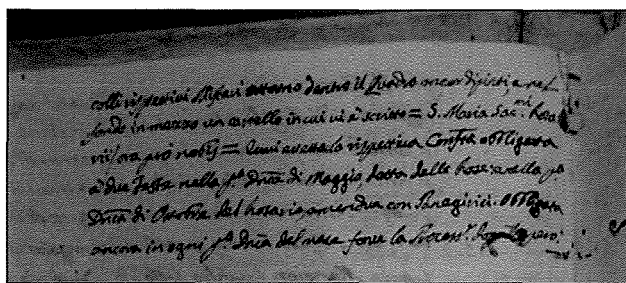 colli rispettivi Misteri attorno dentro il Quadro ancor dipinti e nel
fondo in mezzo un cartello in cui vi è scritto = S. Maria Sac.mi Rosa
rij ora pro nobis = Qui avette la rispettiva Confra obbligata
a due Feste nella p.a Dnca di Maggio, detta delle Rose, e nella p.a
Dnca di Ottobre del Rosario, amendue con Panegirici. Obbligata
ancora in ogni p.a Dnca del mese fare la Process.e